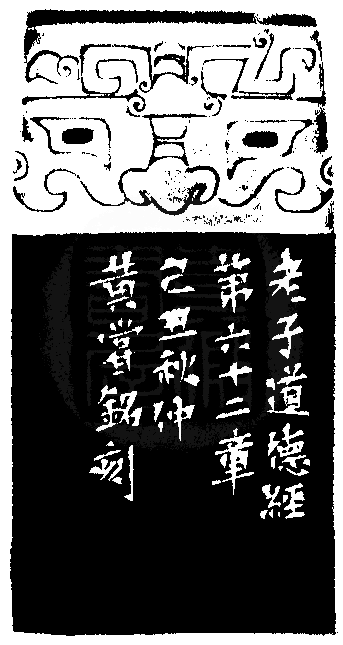 老子道德經
第六十二章
己丑秋仲
黄嘗銘刻